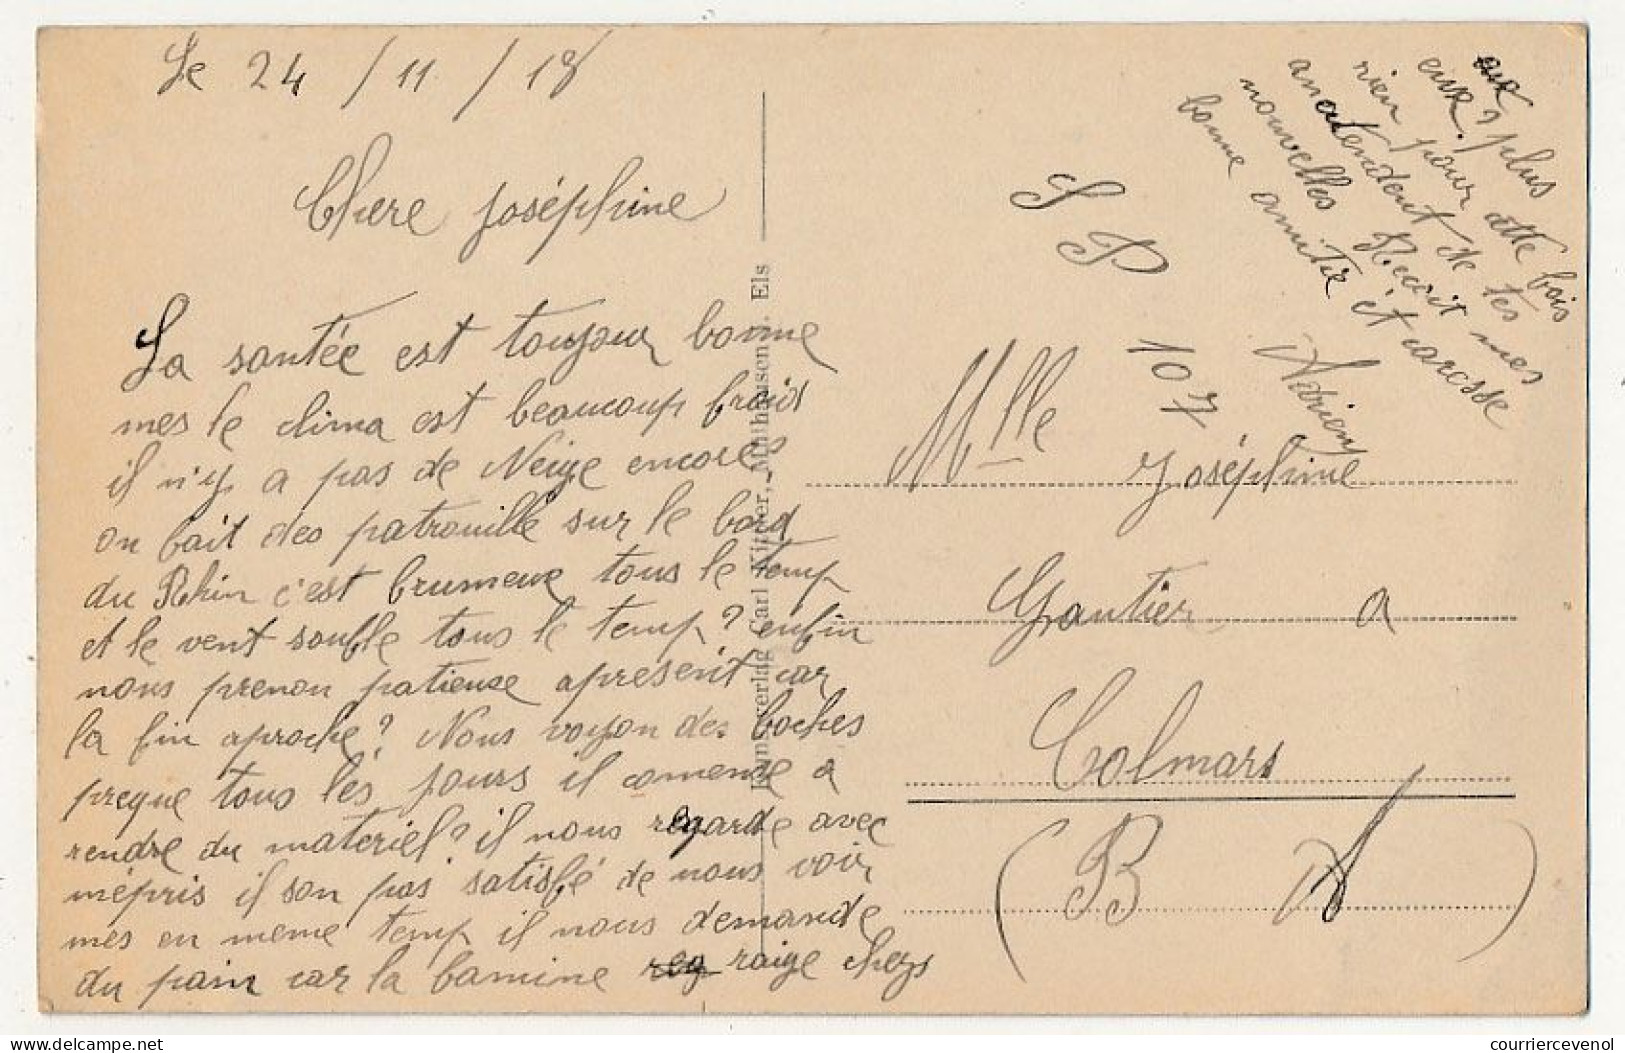 Le 24 / 11 / 18
Chere Joséphine
La santée est toujour bonne
mes le clima est beaucoup froid
il n'y a pas de Neige encore
on fait des patrouille sur le bord
du Rhin c'est brumeux tous le temp
et le vent soufle tous le temp? enfin
nous prenon patiense apresent car
la fin aproche? Nous voyon des boches
preque tous les jours il comense a
rendre du materiel? il nous regarde avec
mépris il son pas satisfé de nous voir
mes en meme temp il nous demande
du pain car la famine reg raige chezs
eux? plus
rien pour cette fois
an atendent de tes
nouvelles Recoit mes
bonne amitié et caresse
Adrien
S P
107
Mlle Joséphine
Gautier a
Colmars
(B A)
Kunstverlag Carl Kitzler, Mülhausen i. Els
courriercevenol
delcampe.net